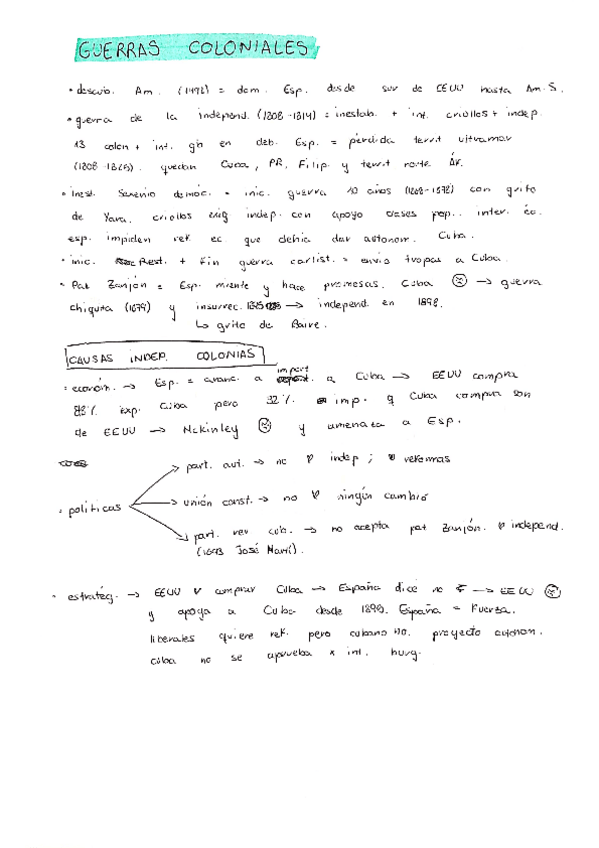 GUERRAS COLONIALES
• descub. Am. (1492) = dom. Esp. desde sur de EEUU hasta Am. S.
• guerra de la independ. (1808-1814) = inestab. + int. criollos + indep.
13 colon + int. gb en deb. Esp. = pérdida territ ultramar
(1808-1825). quedan Cuba, PR, Filip. y territ norte Áf.
• inest. Sexenio democ. = inic. guerra 10 años (1868-1878) con grito
de Yara. criollos exig indep. con apoyo clases pop.. inter. ec.
esp. impiden ref. ec. que debía dar autonom. Cuba.
• inic. Rest. + fin guerra carlist. = envío tropas a Cuba.
• Pat Zanjón = Esp. miente y hace promesas. Cuba ☹ → guerra
chiquita (1879) y insurrec. → independ. en 1898.
↳ grito de Baire.
CAUSAS INDEP. COLONIAS
import
• económ. → Esp. = aranc. a a Cuba → EEUU compra
88% exp. Cuba pero 32% imp. q Cuba compra son
de EEUU → McKinley ☹ y amenaza a Esp.
→ part. aut. → no indep; reformas
• políticas → unión const. → no ningún cambio
→ part. rev cub. → no acepta pat Zanjón. independ.
(1893 José Martí).
• estratég. → EEUU comprar Cuba → España dice no → EEUU ☹
y apoya a Cuba desde España = Fuerza.
liberales quiere ref. pero cubano no. proyecto autonom.
Cuba no se aprueba x int. burg.